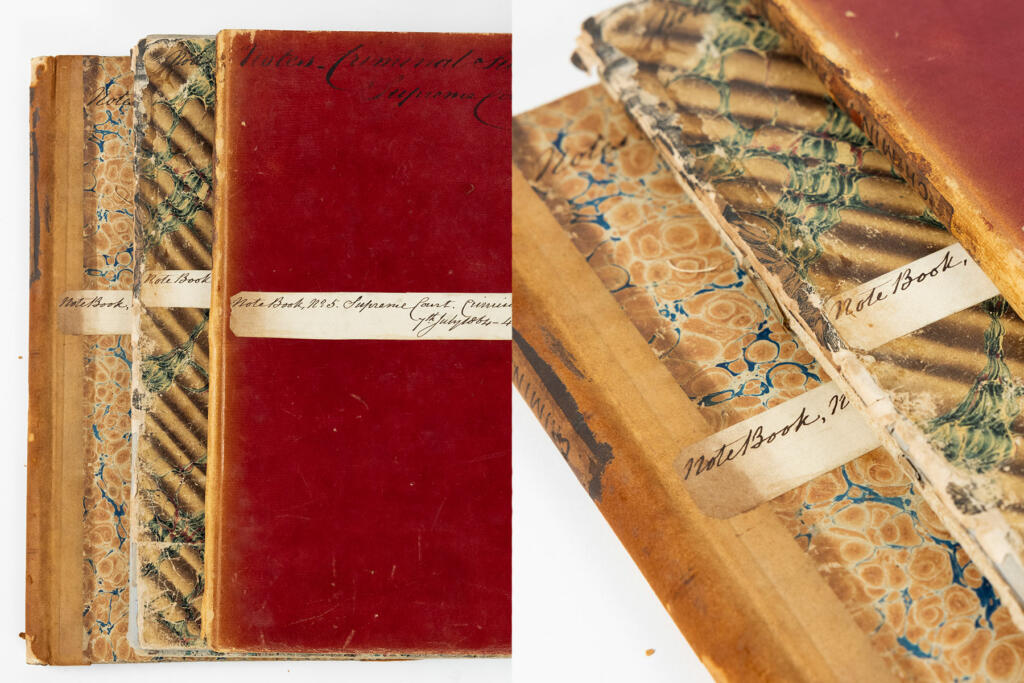 Notes. Criminal
Supreme Co
Note
Note
Note Book,
Note Book
Note Book, No 5. Supreme Court. Crimin
7th July 1864 - 4
Notes
Note Book,
Note Book, N
CRIMIN